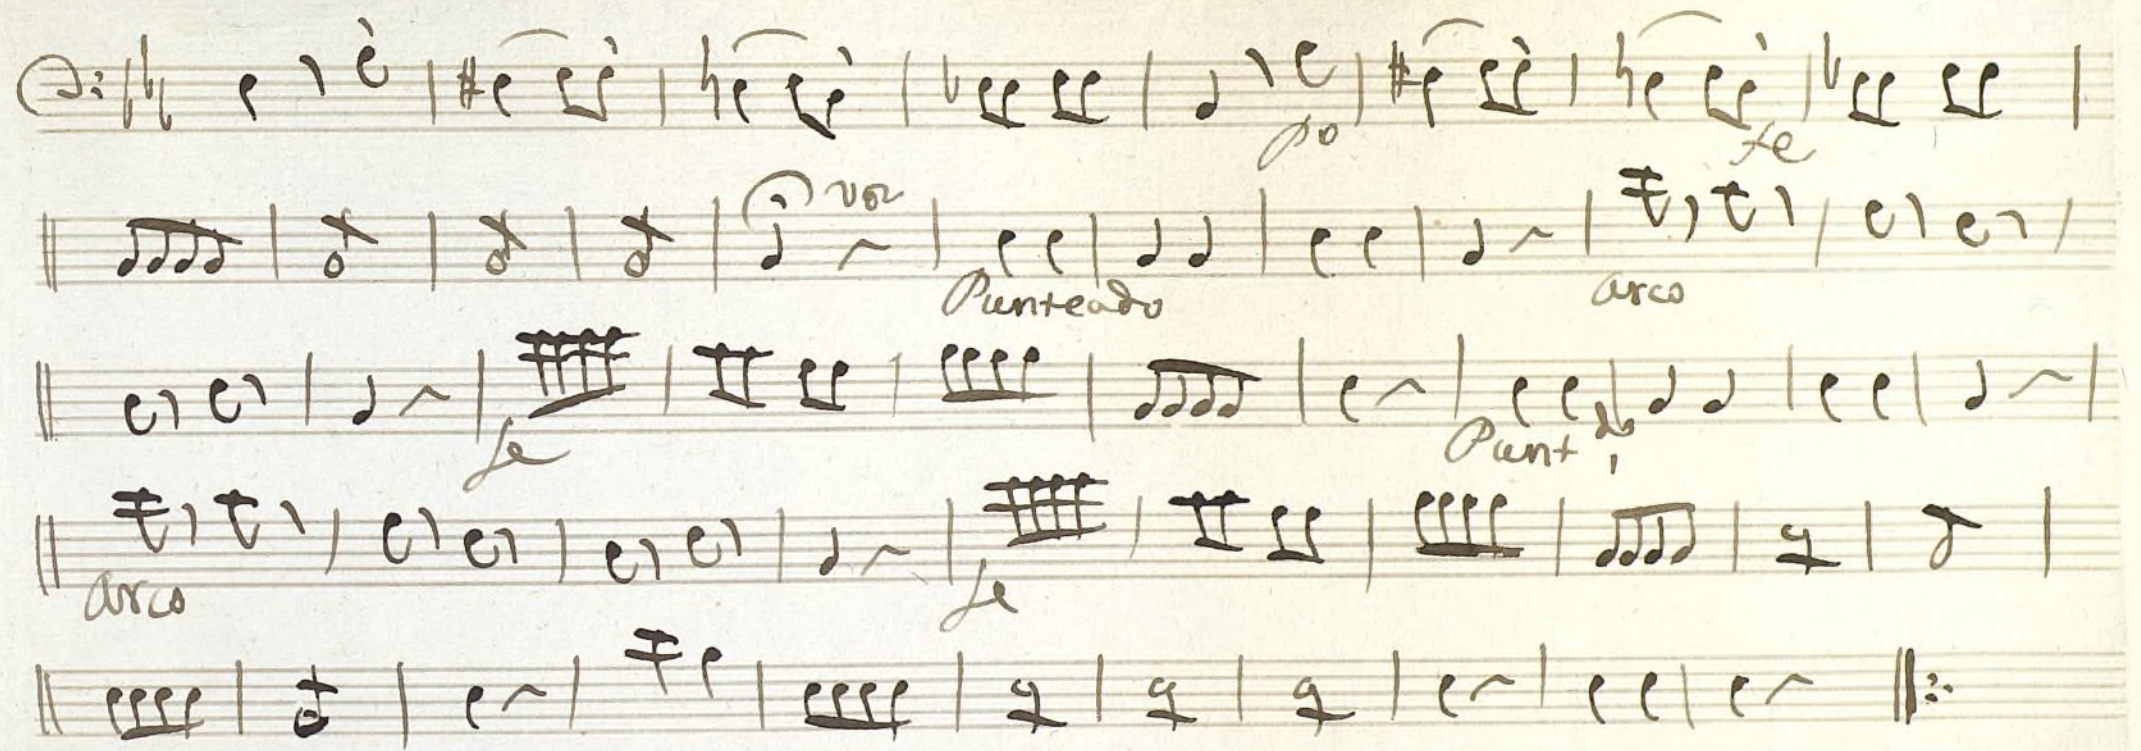 po fe
voz
Punteado arco
fe Punt.do
arco fe